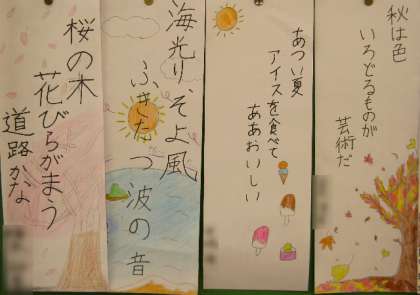 秋は色
いろどるものが
芸術だ
あつい夏
アイスを食べて
ああおいしい
海光り、そよ風
ふきたつ波の音
桜の木
花びらがまう
道路かな